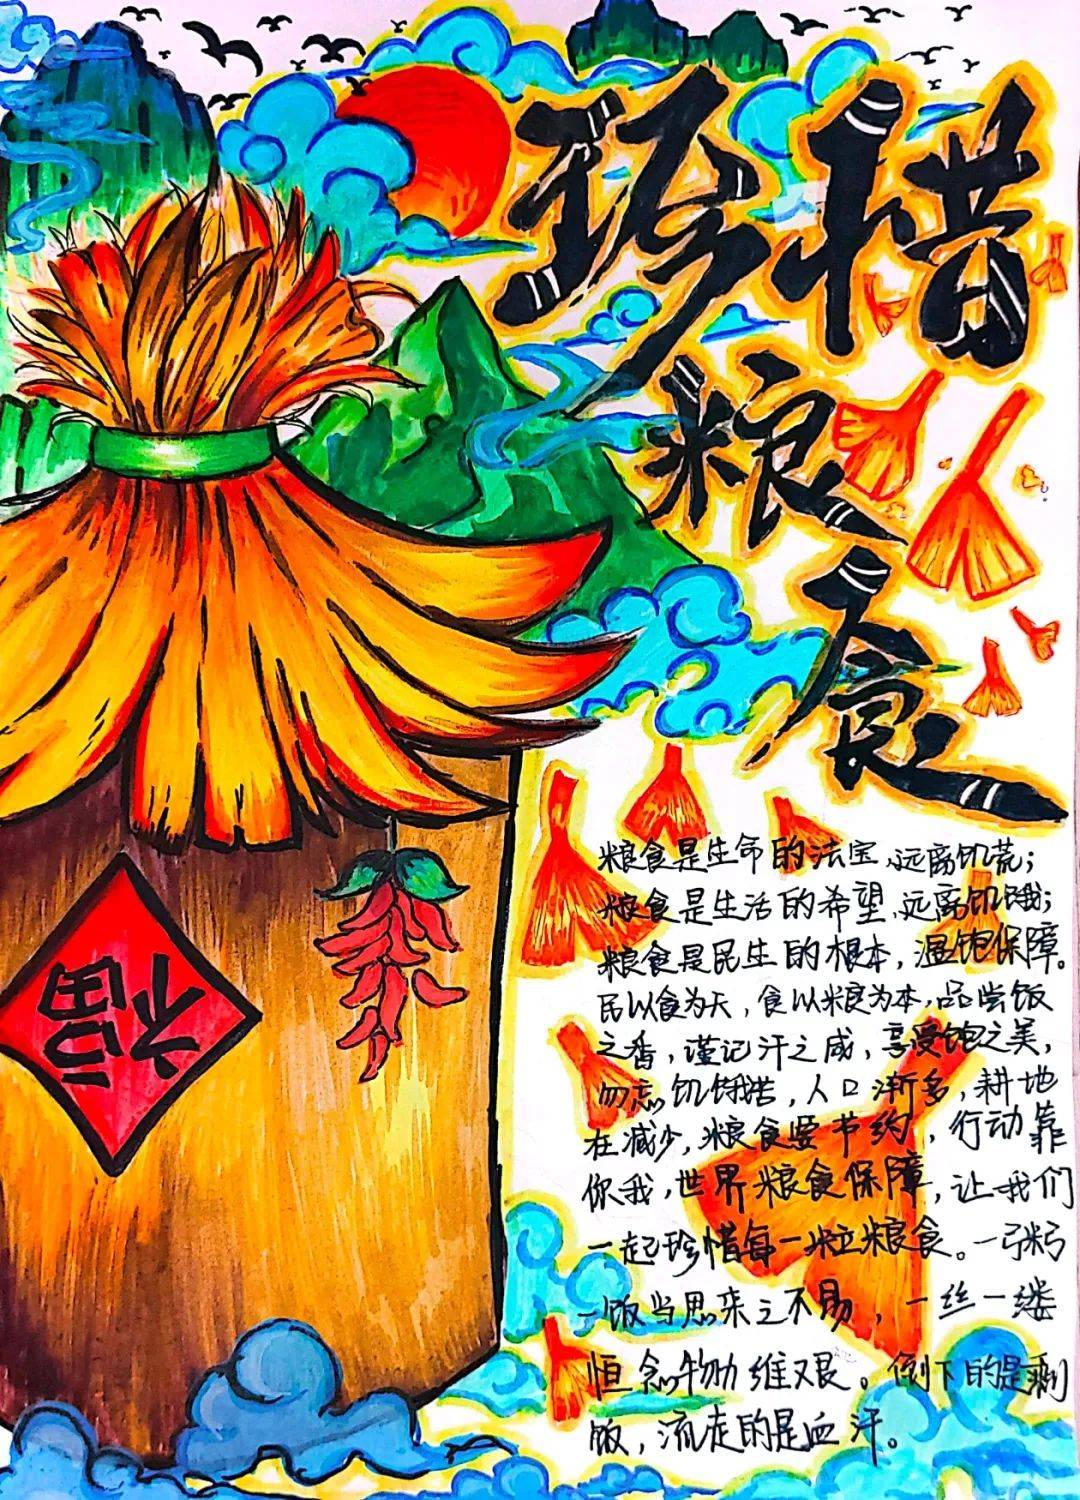 珍惜
粮食
福
粮食是生命的法宝、远离饥荒;
粮食是生活的希望、远离饥饿;
粮食是民生的根本,温饱保障。
民以食为天,食以粮为本,品尝饭
之香,谨记汗之成,享受饱之美,
勿忘饥饿苦,人口渐多,耕地
在减少,粮食要节约,行动靠
你我,世界粮食保障,让我们
一起珍惜每一粒粮食。一
一饭当思来之不易,一丝一缕
恒念物力维艰。倒下的是剩
饭,流走的是血汗。